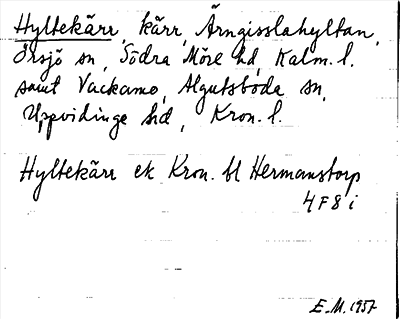 Hyltekärr, kärr, Ärngisslahyltan,
Örsjö sn, Södra Möre hd, Kalm. l.
samt Vackamo, Algutsboda sn,
Uppvidinge hd, Kron. l.
Hyltekärr ek Kron. bl Hermanstorp
4 F 8 i
E.M. 1957